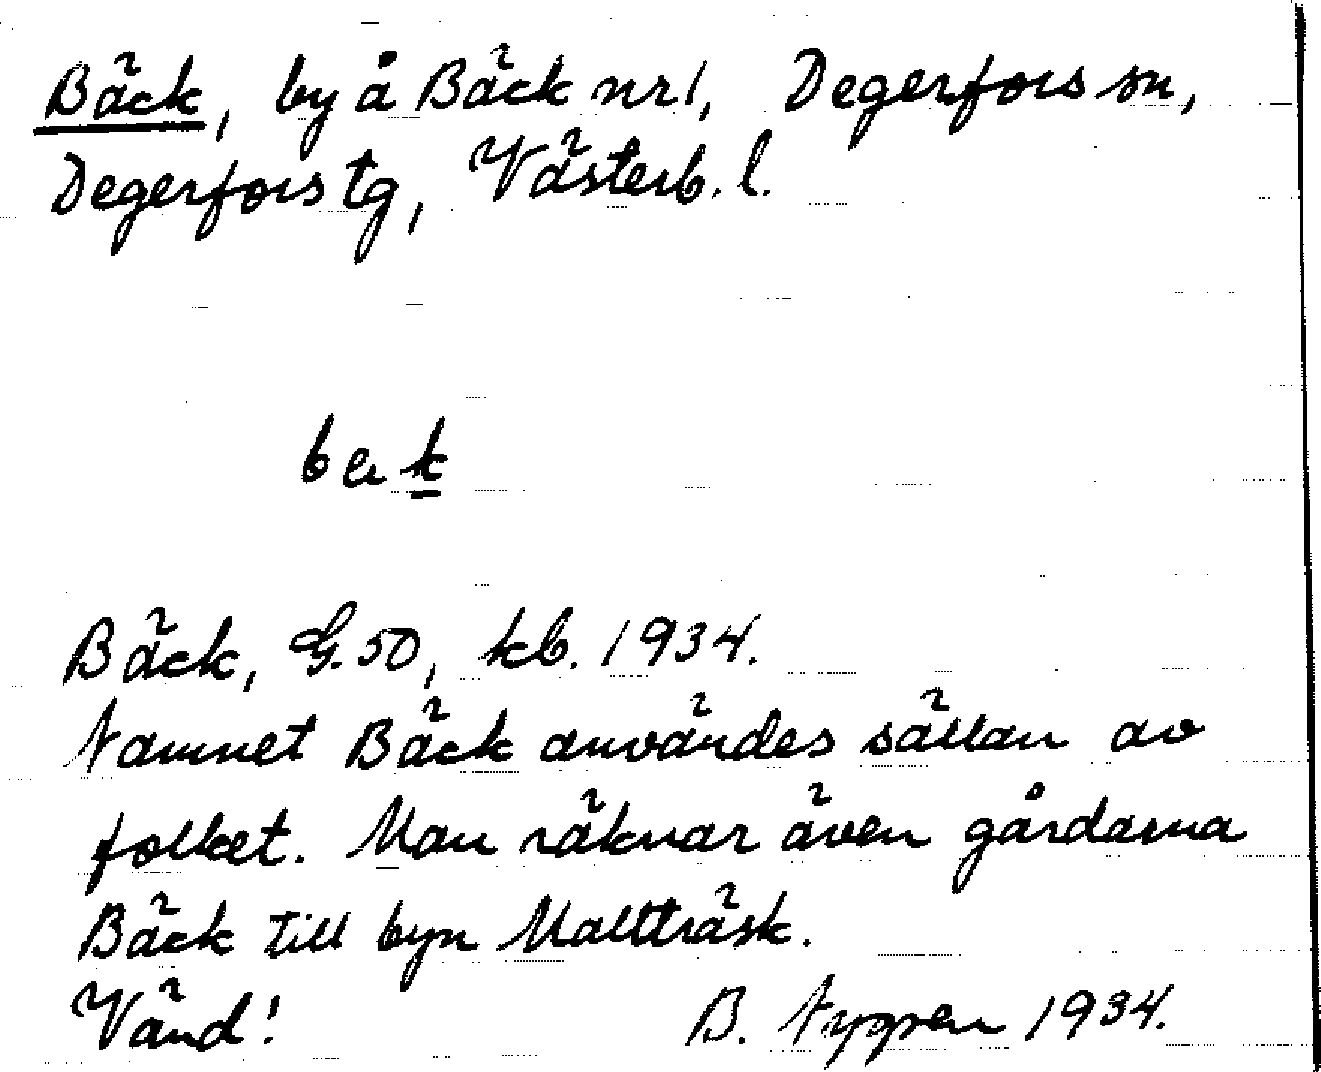 Bäck, by å Bäck nr 1, Degerfors sn,
Degerfors tg, Västerb. l.
Bäck, G. 50, kb. 1934.
Namnet Bäck användes sällan av
folket. Man räknar även gårdarna
Bäck till byn Mallträsk.
Vänd! B. Nygren 1934.